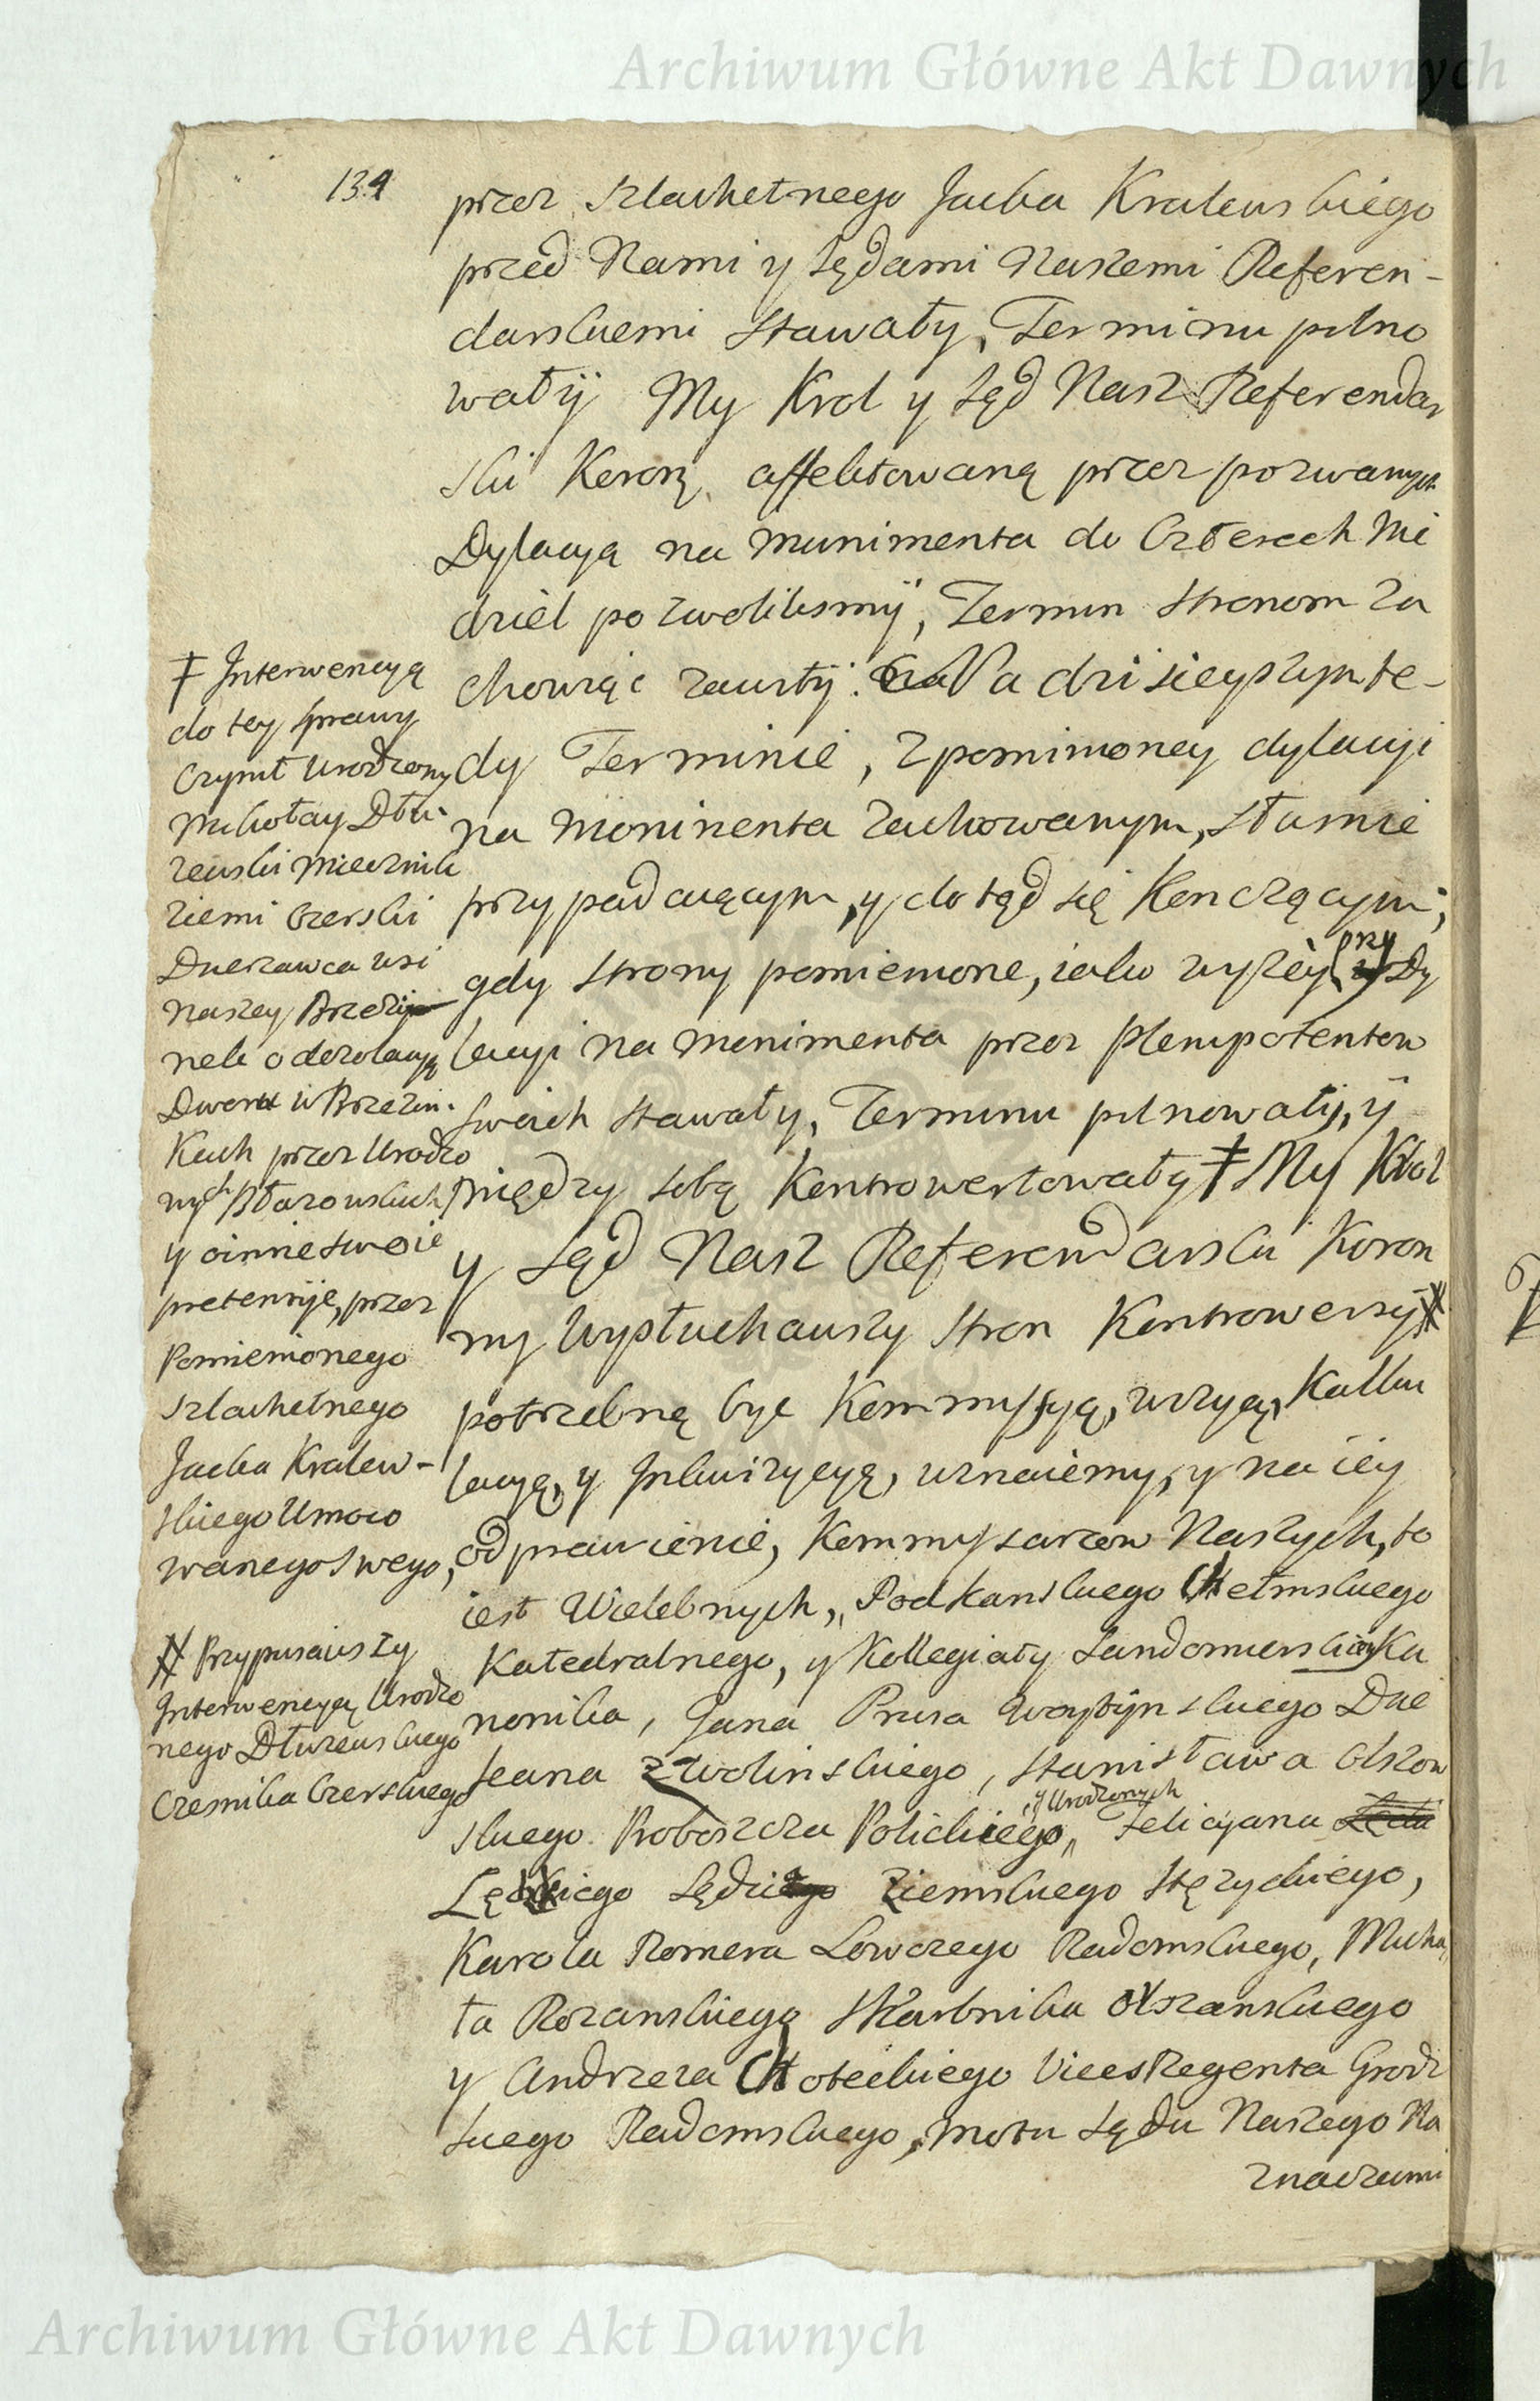 Archiwum Główne Akt Dawnych
134
przez Szlachetnego Jacka Kralewskiego
przed Nami y Sędami Naszemi Referen-
darskiemi stawały, Terminu pilno
wały My Krol y Sąd Nasz Referendar
ski Koron̄. affektowaną przez pozwanych
Dylacyą na munimenta do Czterech Nie
dziel pozwolilismy, Termin stronom za
chowuiąc zawity. Na dzisieyszym te-
dy Terminie, z pomimoney dylacyi
na monimenta zachowanym, słusznie
przypadaiącym, y dotąd się Konczącym;
gdy strony pomienione, iako wyżey przy Dy
lacyi na monimenta przez Plenipotentow
swoich stawały, Terminu pilnowały, y
między sobą Kontrowertowały ‡ My Krol
y Sąd Nasz Referendarski Koron
ny Wysłuchawszy stron Kontrowersyi #
potrzebną być Kommissyą, wizyą, Kalku
lacyą, y Inkwizycyą, uznaiemy, y na iey
odprawienie, Kommyssarzow Naszych, to
iest Wielebnych, Podkanskiego Chełmskiego
Katedralnego, y Kollegiaty Sandomierskiey Ka
nonika, Jana Prusa Woytynskiego Dzie
kana Zwolinskiego, Stanisława Olszow
skiego Proboszcza Polickiego, Felicyana
, y Urodzonych
Łęckiego Sędziego Ziemskiego Stężyckiego,
Karola Romera Łowczego Radomskiego, Micha
ła Rozanskiego Skarbnika Owrzanskiego
y Andrzeia Choteckiego Vices Regenta Grodz
kiego Radomskiego, motu Sądu Naszego Na
znaczami
‡ Interwencyą
do tey sprawy
Czynił Urodzony
Mikołay Dłu-
żewski Miecznik
Ziemi Czerski
Dzierzawca Wsi
Naszey Brzezi
nek o dezolacyą
Dworu w Brzezin-
Kach przez Urodzo
nych Błazowskich
y oinne swoie
pretensye, przez
Pomienionego
Szlachetnego
Jacka Kralew-
skiego Umoco
wanego swego,
# Przypusciwszy
Interwencyą Urodzo
nego Dłużewskiego
Czesnika Czerskiego
Archiwum Główne Akt Dawnych